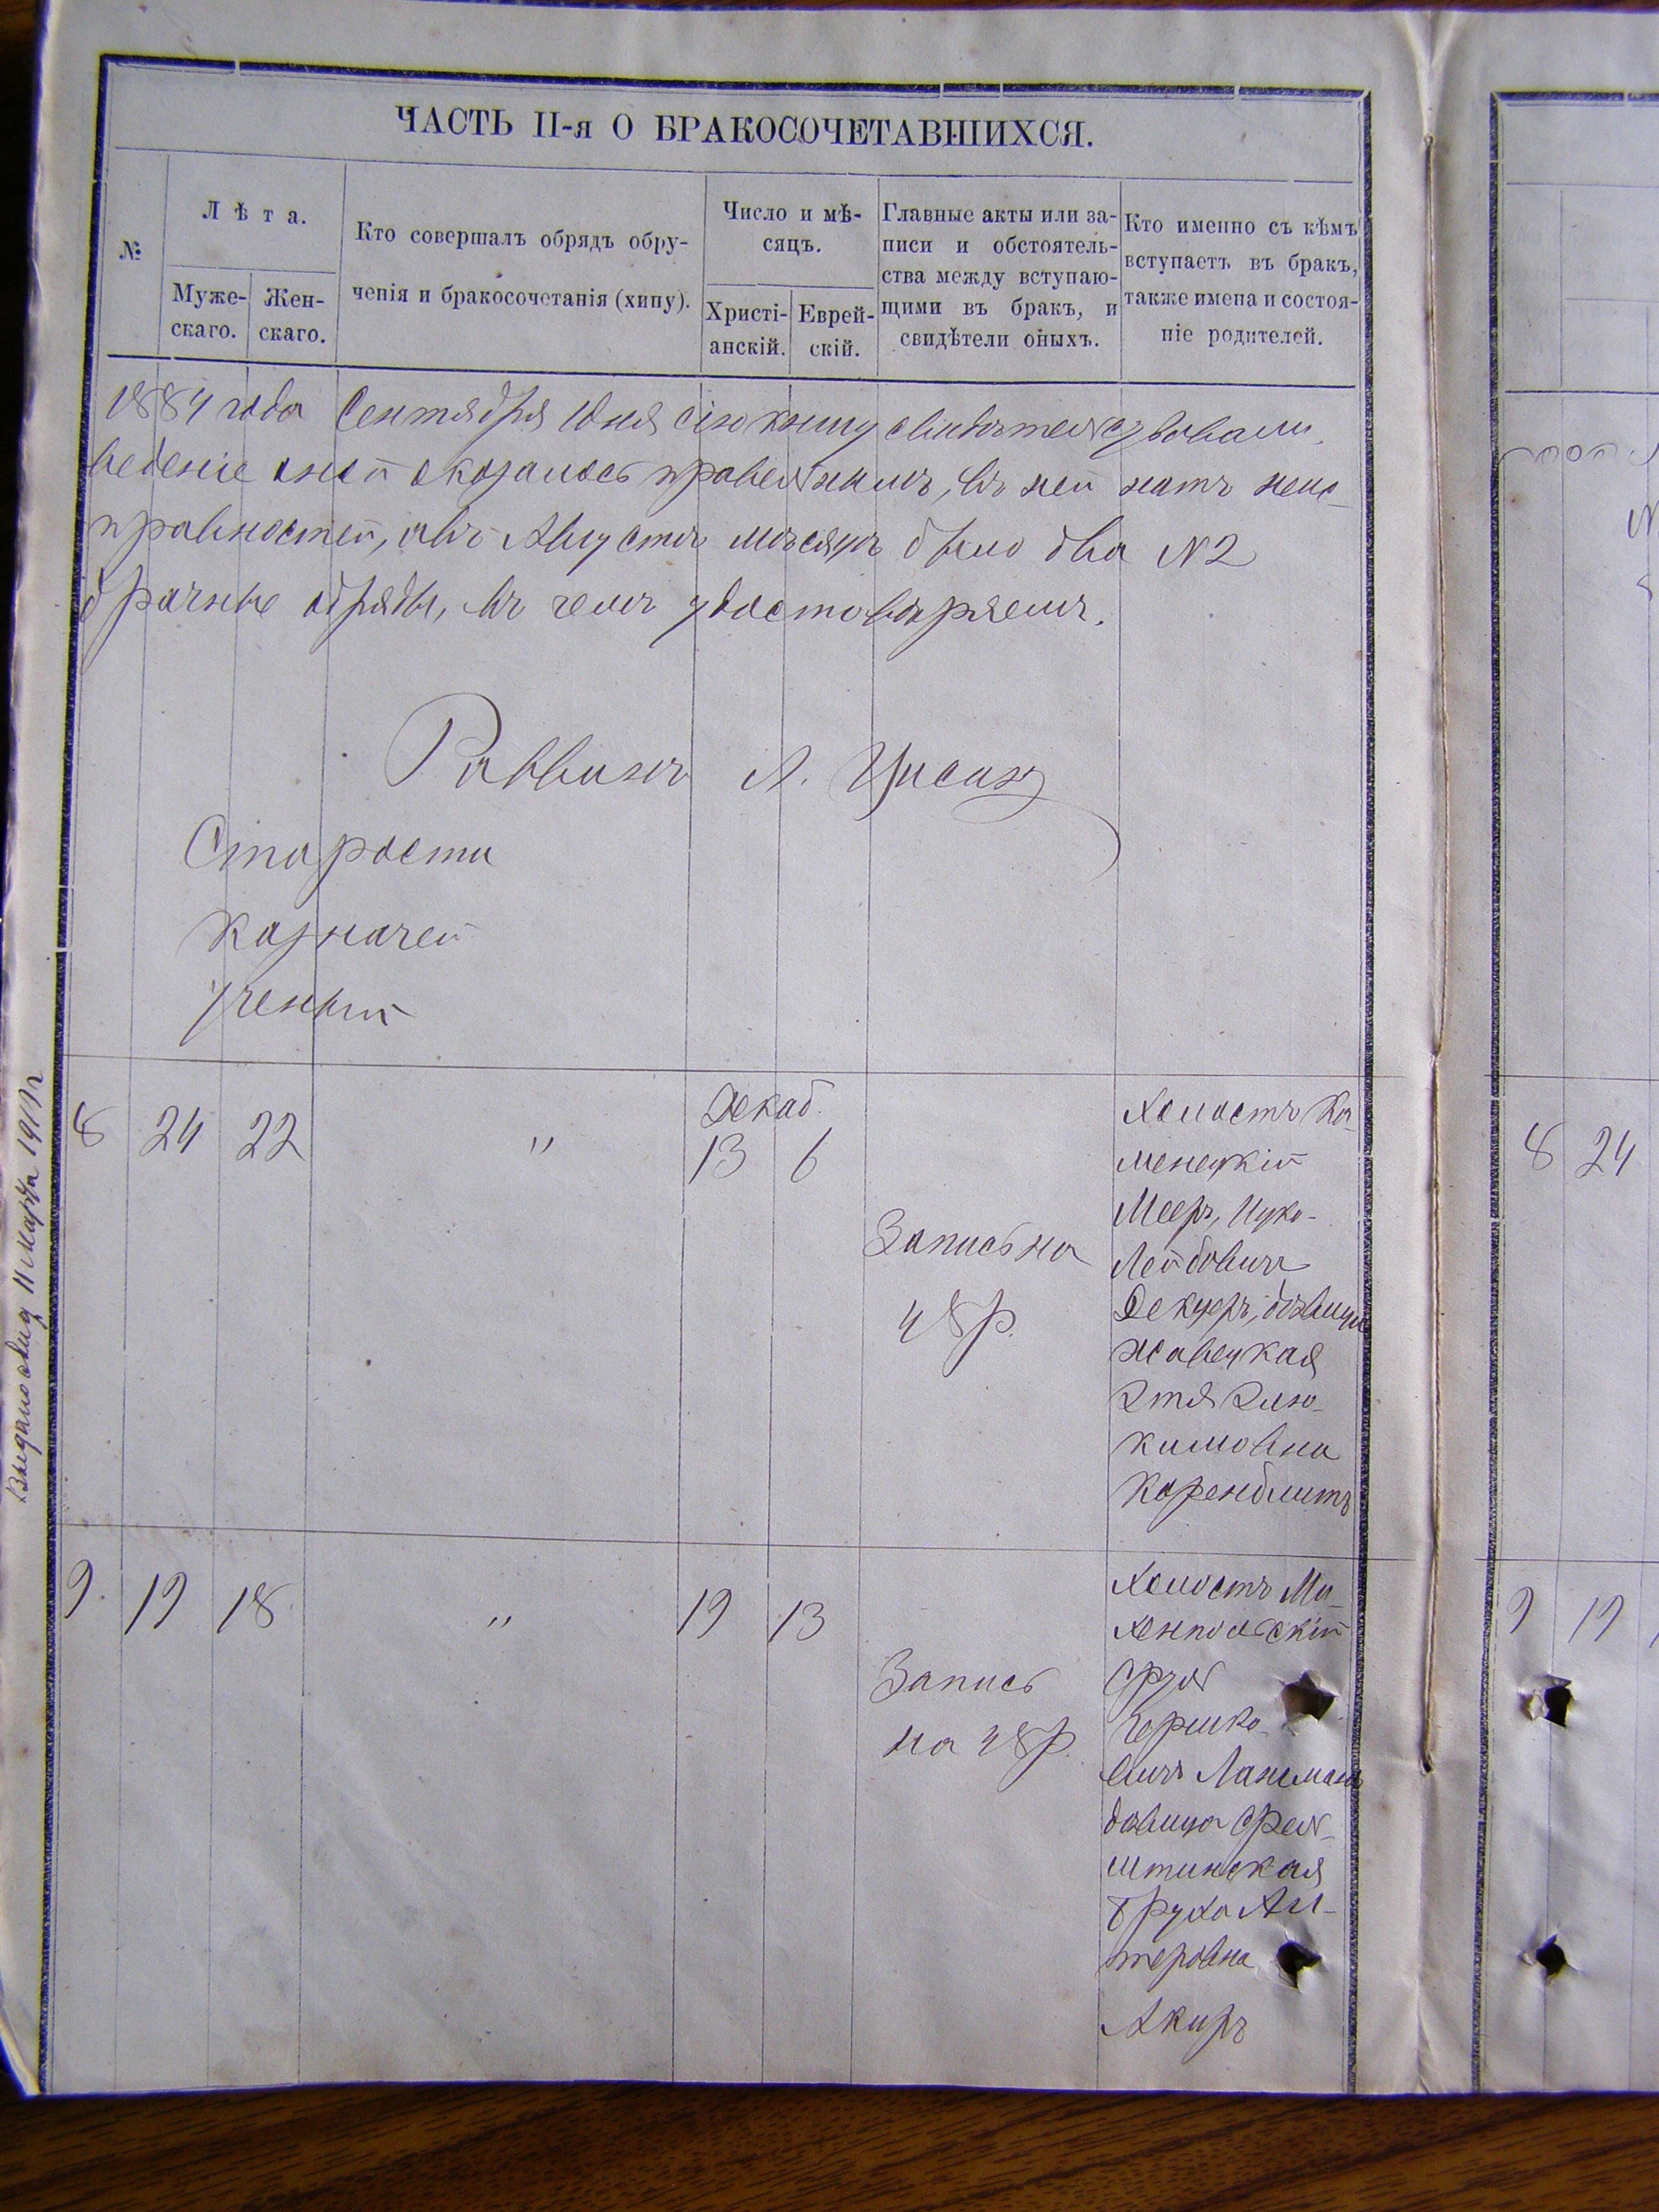 ЧАСТЬ II-я О БРАКОСОЧЕТАВШИХСЯ.
№
Лѣта.
Муже-
скаго.
Жен-
скаго.
Кто совершалъ обрядъ обру-
ченія и бракосочетанія (хипу).
Число и мѣ-
сяцъ.
Христі-
анскій.
Еврей-
скій.
Главные акты или за-
писи и обстоятель-
ства между вступаю-
щими въ бракъ, и
свидѣтели оныхъ.
Кто именно съ кѣмъ
вступаетъ въ бракъ,
также имена и состоя-
ніе родителей.
1884 года Сентября 1 дня сію книгу свидѣтельствовали,
веденіе оной оказалось правельнымъ, въ ней нѣтъ неис-
правностей, а въ Августѣ мѣсяцѣ было два №2
брачные обряды, въ чемъ удостовѣряемъ.
Раввинъ
Старости
Казначей
Ученый
Выдано 11 Марта
8 24 22 " Декаб.
13 6
Запись на
48 р.
Холостъ Ка-
менецкій
Мееръ, Ицко-
Лейбовичъ
Декцеръ, дѣвица
Жабецкая
Этя Элю-
кимовна
Коренблитъ
9. 19 18 " 19 13
Запись
на 48 р.
Холостъ Ми-
хенпольскій
Срул
Гершко-
вичъ Лансманъ
дѣвица Фрел-
штинская
Бруха Ал-
теровна
Акиръ
8 24
9 19